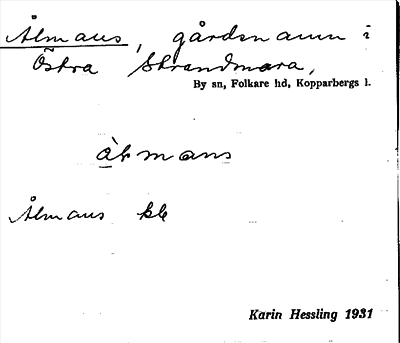 Ålmans, gårdsnamn i
Östra Strandmora,
By sn, Folkare hd, Kopparbergs l.
Ålmans
Karin Hessling 1931